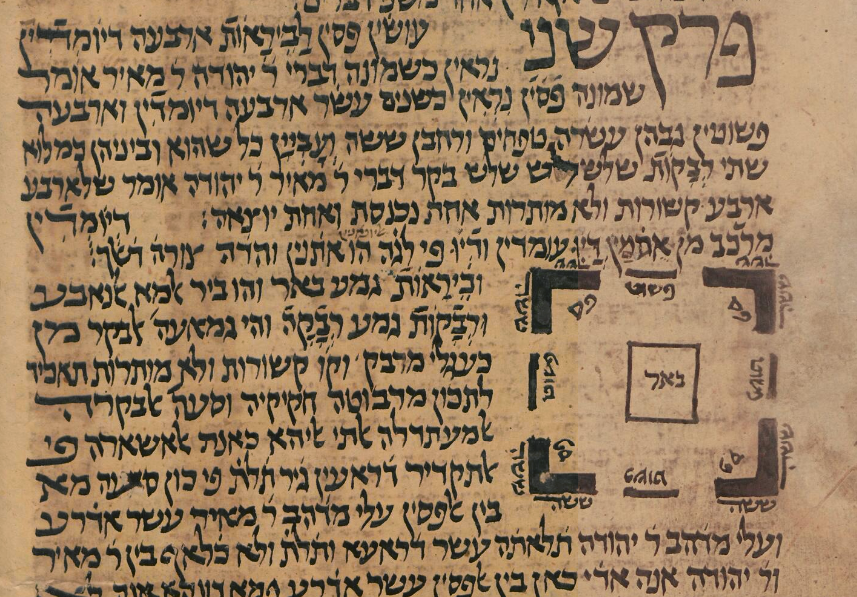 פרק שני
עושין פסין לביראות ארבעה דיומדין
נראין כשמונה דברי ר יהודה ר מאיר אומר
שמונה פסין נראין כשנים עשר ארבעה דיומדין וארבעה
פשוטין גבהן עשרה טפחים ורחבן ששה ועביין כל שהוא וביניהן כמלוא
שתי רבקות שלש שלש בקר דברי ר מאיר ר יהודה אומר שלארבע
ארבע קשורות ולא מותרות אחת נכנסת ואחת יוצאה׃ דיומדין
מרכב מן אתנין דיו עמודין ודיו פי לגה הו אתנין והדה צורה דלך׃
וביראות גמע באר והו ביר אלמא אלנאבע
ורבקות גמע רבקה והי גמאעה אלבקר מן
כעגלי מרבק וקו קשורות ולא מותרות תאכיד
לתכון מרבוטה חקיקיה וסעה אלבקרה
אלמעתדלה אלתי אליהא כאנת אלאשארה פי
אלתקדיר דראעין גיר תלת פי כון סעה מא
בין אלפסין עלי מדהב ר מאיר עשר אדרע
ועלי מדהב ר יהודה תלאתה עשר דראעא ותלת ולא כלאף בין ר מאיר
ור יהודה אנה אדי כאן בין אלפסין עשר אדרע
פשוט
פס
פס
ששה
ששה
פשוט
באר
פשוט
פס
פס
ששה
ששה
פשוט
ששה
ששה